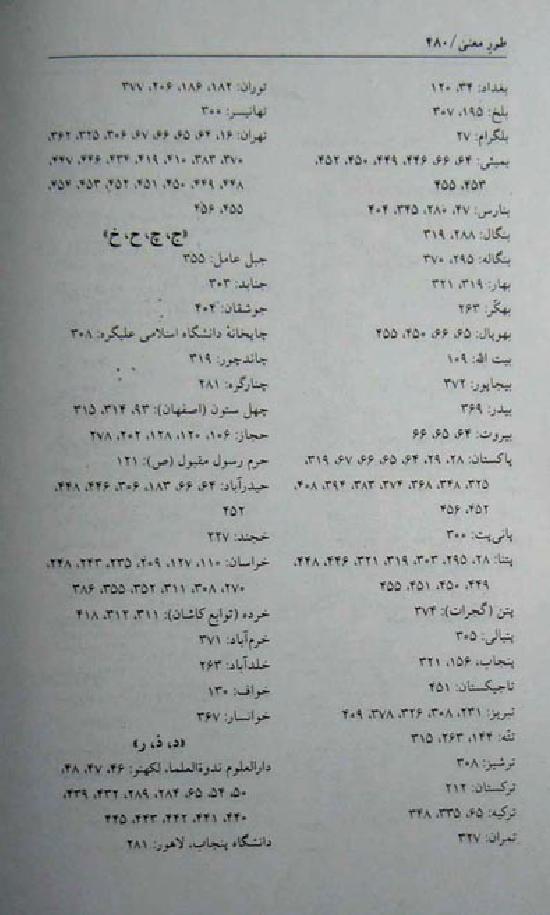 طورِ معنی / ۴۸۰
بغداد: ۳۴، ۱۲۰
بلخ: ۱۹۵، ۳۰۷
بلگرام: ۲۷
بمبئی: ۶۴، ۶۶، ۴۴۶، ۴۴۹، ۴۵۰، ۴۵۲،
۴۵۳، ۴۵۵
بنارس: ۴۷، ۲۸۰، ۳۴۵، ۴۰۴
بنگال: ۲۸۸، ۳۱۹
بنگاله: ۲۹۵، ۳۷۰
بهار: ۳۱۹، ۳۲۱
بهکّر: ۲۶۳
بهوپال: ۶۵، ۶۶، ۴۵۰، ۴۵۵
بیت الله: ۱۰۹
بیجاپور: ۳۷۲
بیدر: ۳۶۹
بیروت: ۶۴، ۶۵، ۶۶
پاکستان: ۲۸، ۲۹، ۶۴، ۶۵، ۶۶، ۶۷، ۳۱۹،
۳۲۵، ۳۴۸، ۳۶۸، ۳۷۴، ۳۸۳، ۳۹۴، ۴۰۸،
۴۵۲، ۴۵۶
پانی‌پت: ۳۰۰
پتنا: ۲۸، ۲۹۵، ۳۰۳، ۳۱۹، ۳۲۱، ۴۴۶، ۴۴۸،
۴۴۹، ۴۵۰، ۴۵۱، ۴۵۵
پتن (گجرات): ۳۷۴
پتیالی: ۳۰۵
پنجاب، ۱۵۶، ۳۲۱
تاجیکستان: ۴۵۱
تبریز: ۲۳۱، ۳۰۸، ۳۲۶، ۳۷۸، ۴۰۹
تتّه: ۱۴۴، ۲۶۳، ۳۱۵
ترشیز: ۳۰۸
ترکستان: ۲۱۲
ترکیه: ۶۵، ۳۳۵، ۳۴۸
تمران: ۳۲۷
توران: ۱۸۲، ۱۸۶، ۲۰۶، ۳۷۷
تهانیسر: ۳۰۰
تهران: ۱۶، ۶۴، ۶۵، ۶۶، ۶۷، ۳۰۶، ۳۲۵، ۳۶۲،
۳۷۰، ۳۸۳، ۴۱۰، ۴۱۹، ۴۳۴، ۴۴۶، ۴۴۷،
۴۴۸، ۴۴۹، ۴۵۰، ۴۵۱، ۴۵۲، ۴۵۳، ۴۵۴،
۴۵۵، ۴۵۶
«ج، چ، ح، خ»
جبل عامل: ۳۵۵
جنابد: ۳۰۳
جوشقان: ۴۰۴
چاپخانهٔ دانشگاه اسلامی علیگره: ۳۰۸
چاندجور: ۳۱۹
چنارگره: ۲۸۱
چهل ستون (اصفهان): ۹۳، ۳۱۴، ۳۱۵
حجاز: ۱۰۶، ۱۲۰، ۱۲۸، ۲۰۲، ۲۷۸
حرم رسول مقبول (ص): ۱۲۱
حیدرآباد: ۶۴، ۶۶، ۱۸۳، ۳۰۶، ۴۴۶، ۴۴۸،
۴۵۲
خجند: ۲۲۷
خراسان: ۱۱۰، ۱۲۷، ۲۰۹، ۲۳۵، ۲۴۳، ۲۴۸،
۲۷۰، ۳۰۸، ۳۱۱، ۳۵۲، ۳۵۵، ۳۸۶
خرده (توابع کاشان): ۳۱۱، ۳۱۲، ۴۱۸
خرم‌آباد: ۳۷۱
خلدآباد: ۲۶۳
خواف: ۱۳۰
خوانسار: ۳۶۷
«د، ڈ، ر»
دارالعلوم ندوةالعلما، لکهنو: ۴۶، ۴۷، ۴۸،
۵۰، ۵۴، ۶۵، ۲۸۴، ۲۸۹، ۴۳۲، ۴۳۹،
۴۴۰، ۴۴۱، ۴۴۲، ۴۴۳، ۴۴۵
دانشگاه پنجاب، لاهور: ۲۸۱